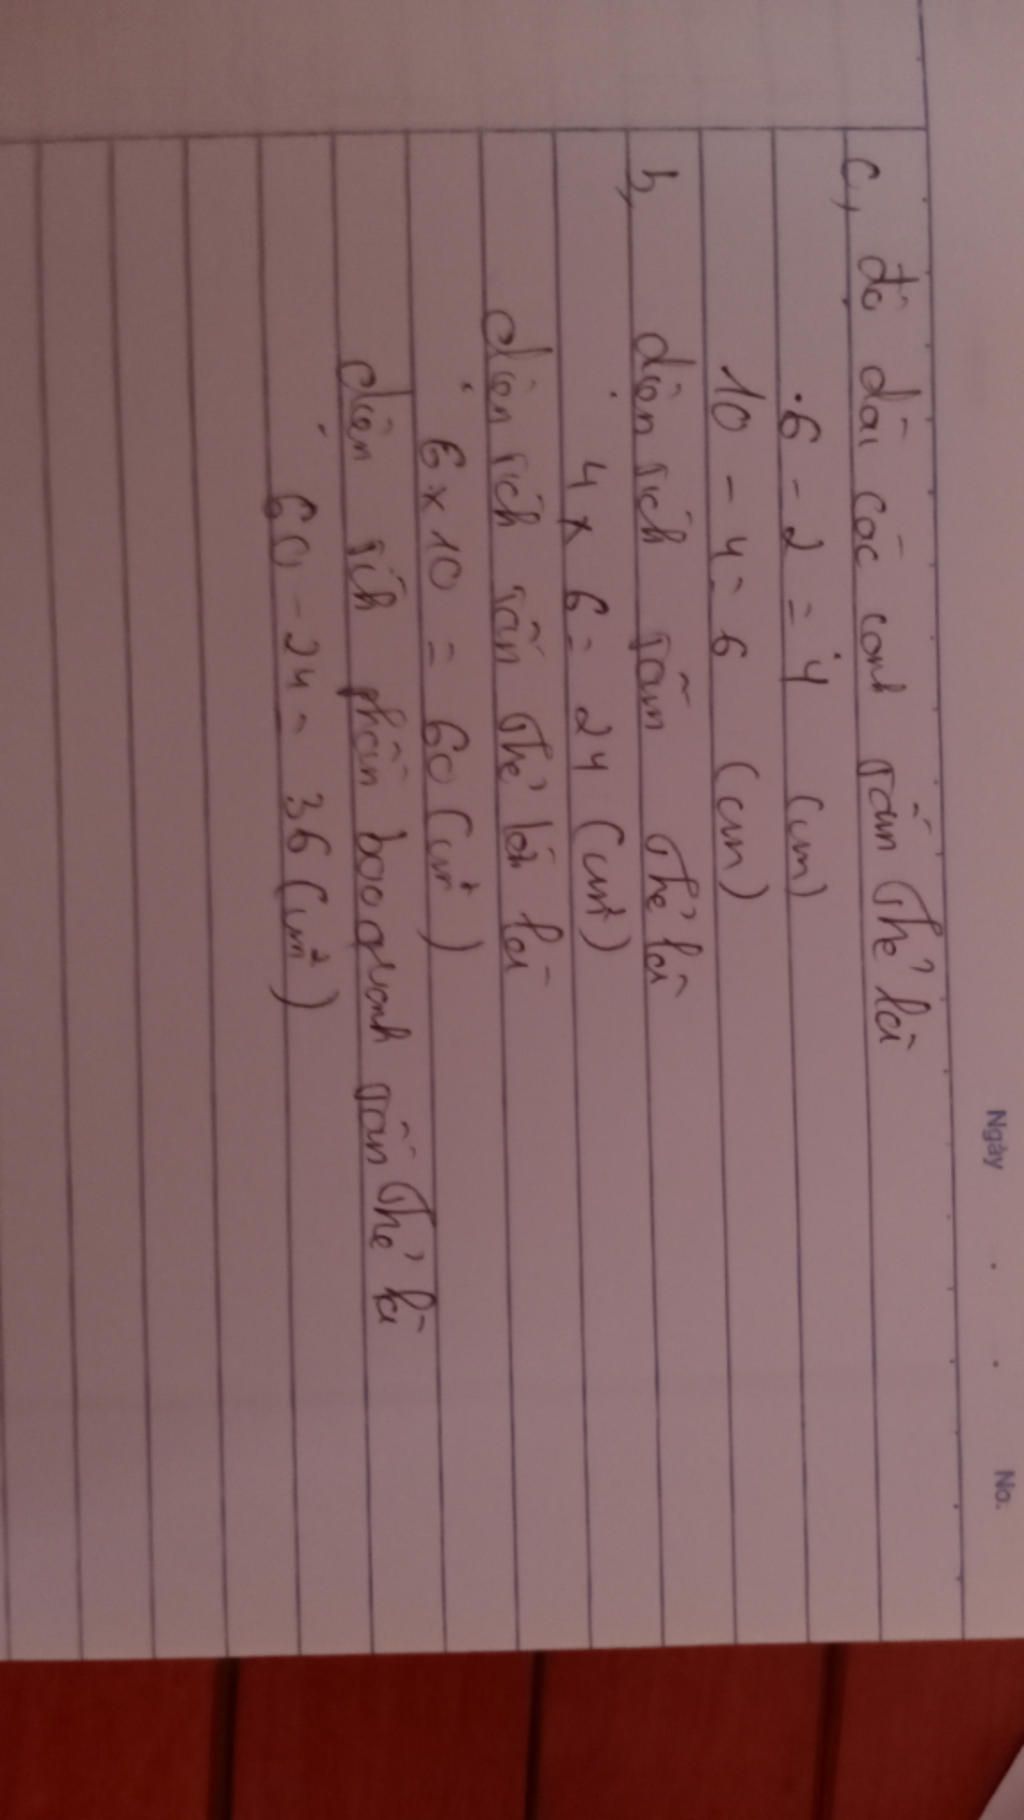 Ngày . . No.
c, độ dài các cạnh tấm thẻ là
6 - 2 = 4 (cm)
10 - 4 = 6 (cm)
b, diện tích tấm thẻ là
4 x 6 = 24 (cm²)
diện tích tấm thẻ lớn là
6 x 10 = 60 (cm²)
diện tích phần bao quanh tấm thẻ là
60 - 24 = 36 (cm²)